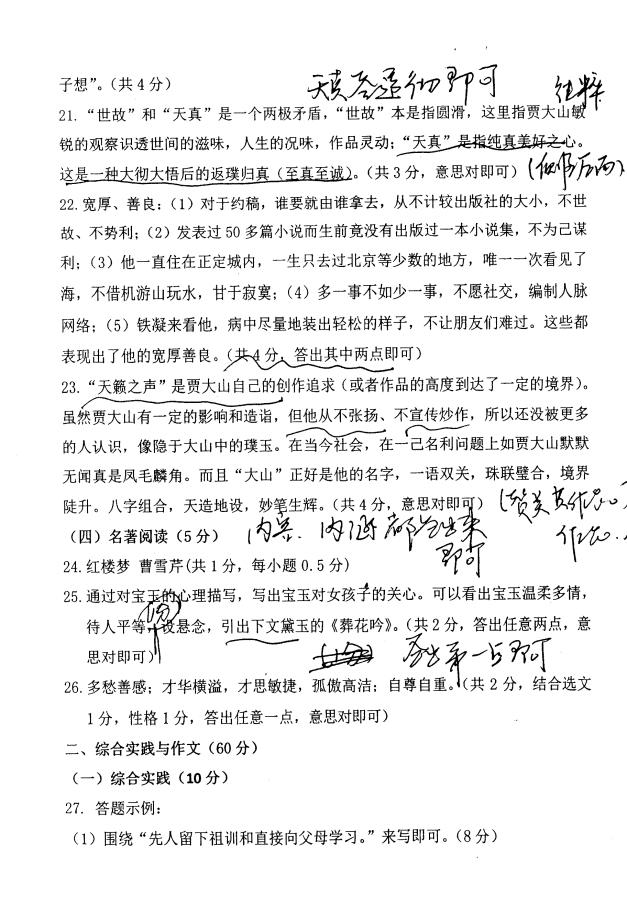 子想”。（共４分） 天真答透彻即可 纯粹
21. “世故”和“天真”是一个两极矛盾，“世故”本是指圆滑，这里指贾大山敏
锐的观察识透世间的滋味，人生的况味，作品灵动；“天真”是指纯真美好之心。
这是一种大彻大悟后的返璞归真（至真至诚）。（共 3 分，意思对即可）
22. 宽厚、善良：（1）对于约稿，谁要就由谁拿去，从不计较出版社的大小，不世
故、不势利；（2）发表过 50 多篇小说而生前竟没有出版过一本小说集，不为己谋
利；（3）他一直住在正定城内，一生只去过北京等少数的地方，唯一一次看见了
海，不借机游山玩水，甘于寂寞；（4）多一事不如少一事，不愿社交，编制人脉
网络；（5）铁凝来看他，病中尽量地装出轻松的样子，不让朋友们难过。这些都
表现出了他的宽厚善良。（共 4 分，答出其中两点即可）
23. “天籁之声”是贾大山自己的创作追求（或者作品的高度到达了一定的境界）。
虽然贾大山有一定的影响和造诣，但他从不张扬、不宣传炒作，所以还没被更多
的人认识，像隐于大山中的璞玉。在当今社会，在一己名利问题上如贾大山默默
无闻真是凤毛麟角。而且“大山”正好是他的名字，一语双关，珠联璧合，境界
陡升。八字组合，天造地设，妙笔生辉。（共 4 分，意思对即可）
（四）名著阅读（5 分） 内容、内涵都答出来
即可
24. 红楼梦 曹雪芹(共 1 分，每小题 0.5 分)
25. 通过对宝玉的心理描写，写出宝玉对女孩子的关心。可以看出宝玉温柔多情，
待人平等 设悬念，引出下文黛玉的《葬花吟》。（共 2 分，答出任意两点，意
思对即可） 答出第一点即可
26. 多愁善感；才华横溢，才思敏捷，孤傲高洁；自尊自重。（共 2 分，结合选文
1 分，性格 1 分，答出任意一点，意思对即可）
二、综合实践与作文（60 分）
（一）综合实践（10 分）
27. 答题示例：
（1）围绕“先人留下祖训和直接向父母学习。”来写即可。（8 分）